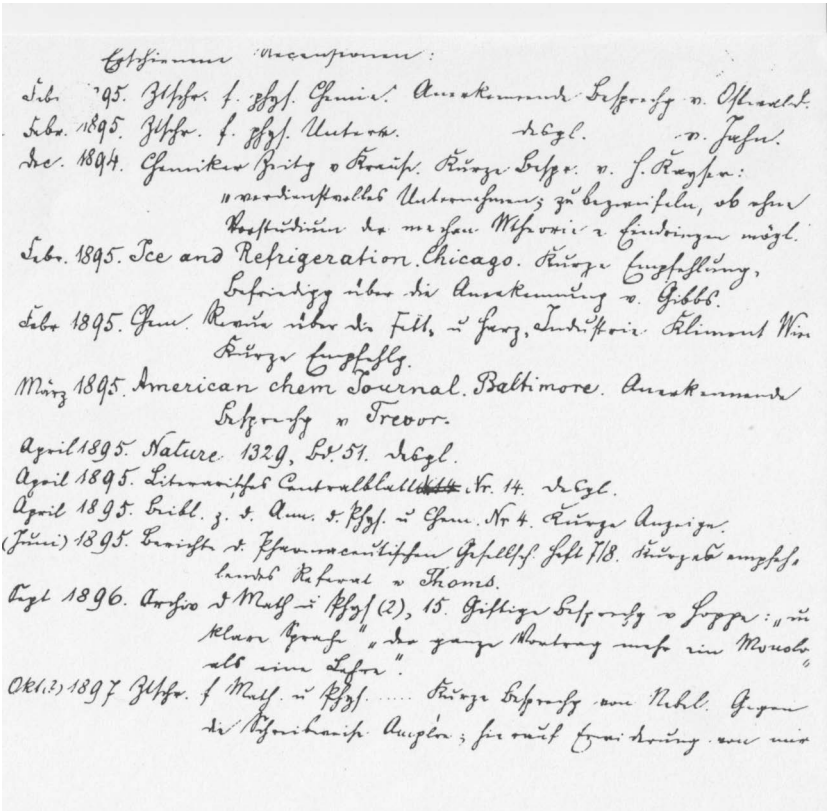 Erschienene Recensionen:
Febr. 95. Ztschr. f. phys. Chemie. Anerkennende Besprechg v. Ostwald.
Febr. 1895. Ztschr. f. phys. Unterr. desgl. v. Jahn.
Dec. 1894. Chemiker Zeitg v Krause. Kurze Bespr. v. H. Kayser:
"verdienstvolles Unternehmen; zu bezweifeln, ob ohne
Vorstudium der mechan Wtheorie e Eindringen mögl.
Febr. 1895. Ice and Refrigeration. Chicago. Kurze Empfehlung,
Befriedigg über die Anerkennung v. Gibbs.
Febr 1895. Chem. Revue über die Fett- u Harz-Industrie Kliment Wien
Kurze Empfehlg.
März 1895. American chem Journal. Baltimore. Anerkennende
Besprechg v Trevor.
April 1895. Nature 1329, Bd. 51. desgl.
April 1895. Literarisches Centralblatt Nr. 14. desgl.
April 1895. Beibl. z. d. Ann. d. Phys. u Chem. Nr 4. Kurze Anzeige.
(Juni) 1895. Berichte d. Pharmaceutischen Gesellsch. Heft 7/8. Kurzes empfeh-
lendes Referat v Thoms.
Sept 1896. Archiv d Math u Phys (2), 15. Giftige Besprechg v Hoppe: "un
klare Sprache" "der ganze Vortrag mehr ein Monolog
als eine Lehre".
Okt(?) 1897 Ztschr. f Math. u Phys. ..... Kurze Besprechg von Nebel. Gegen
die Schreibweise Ampère; hierauf Erwiderung von mir